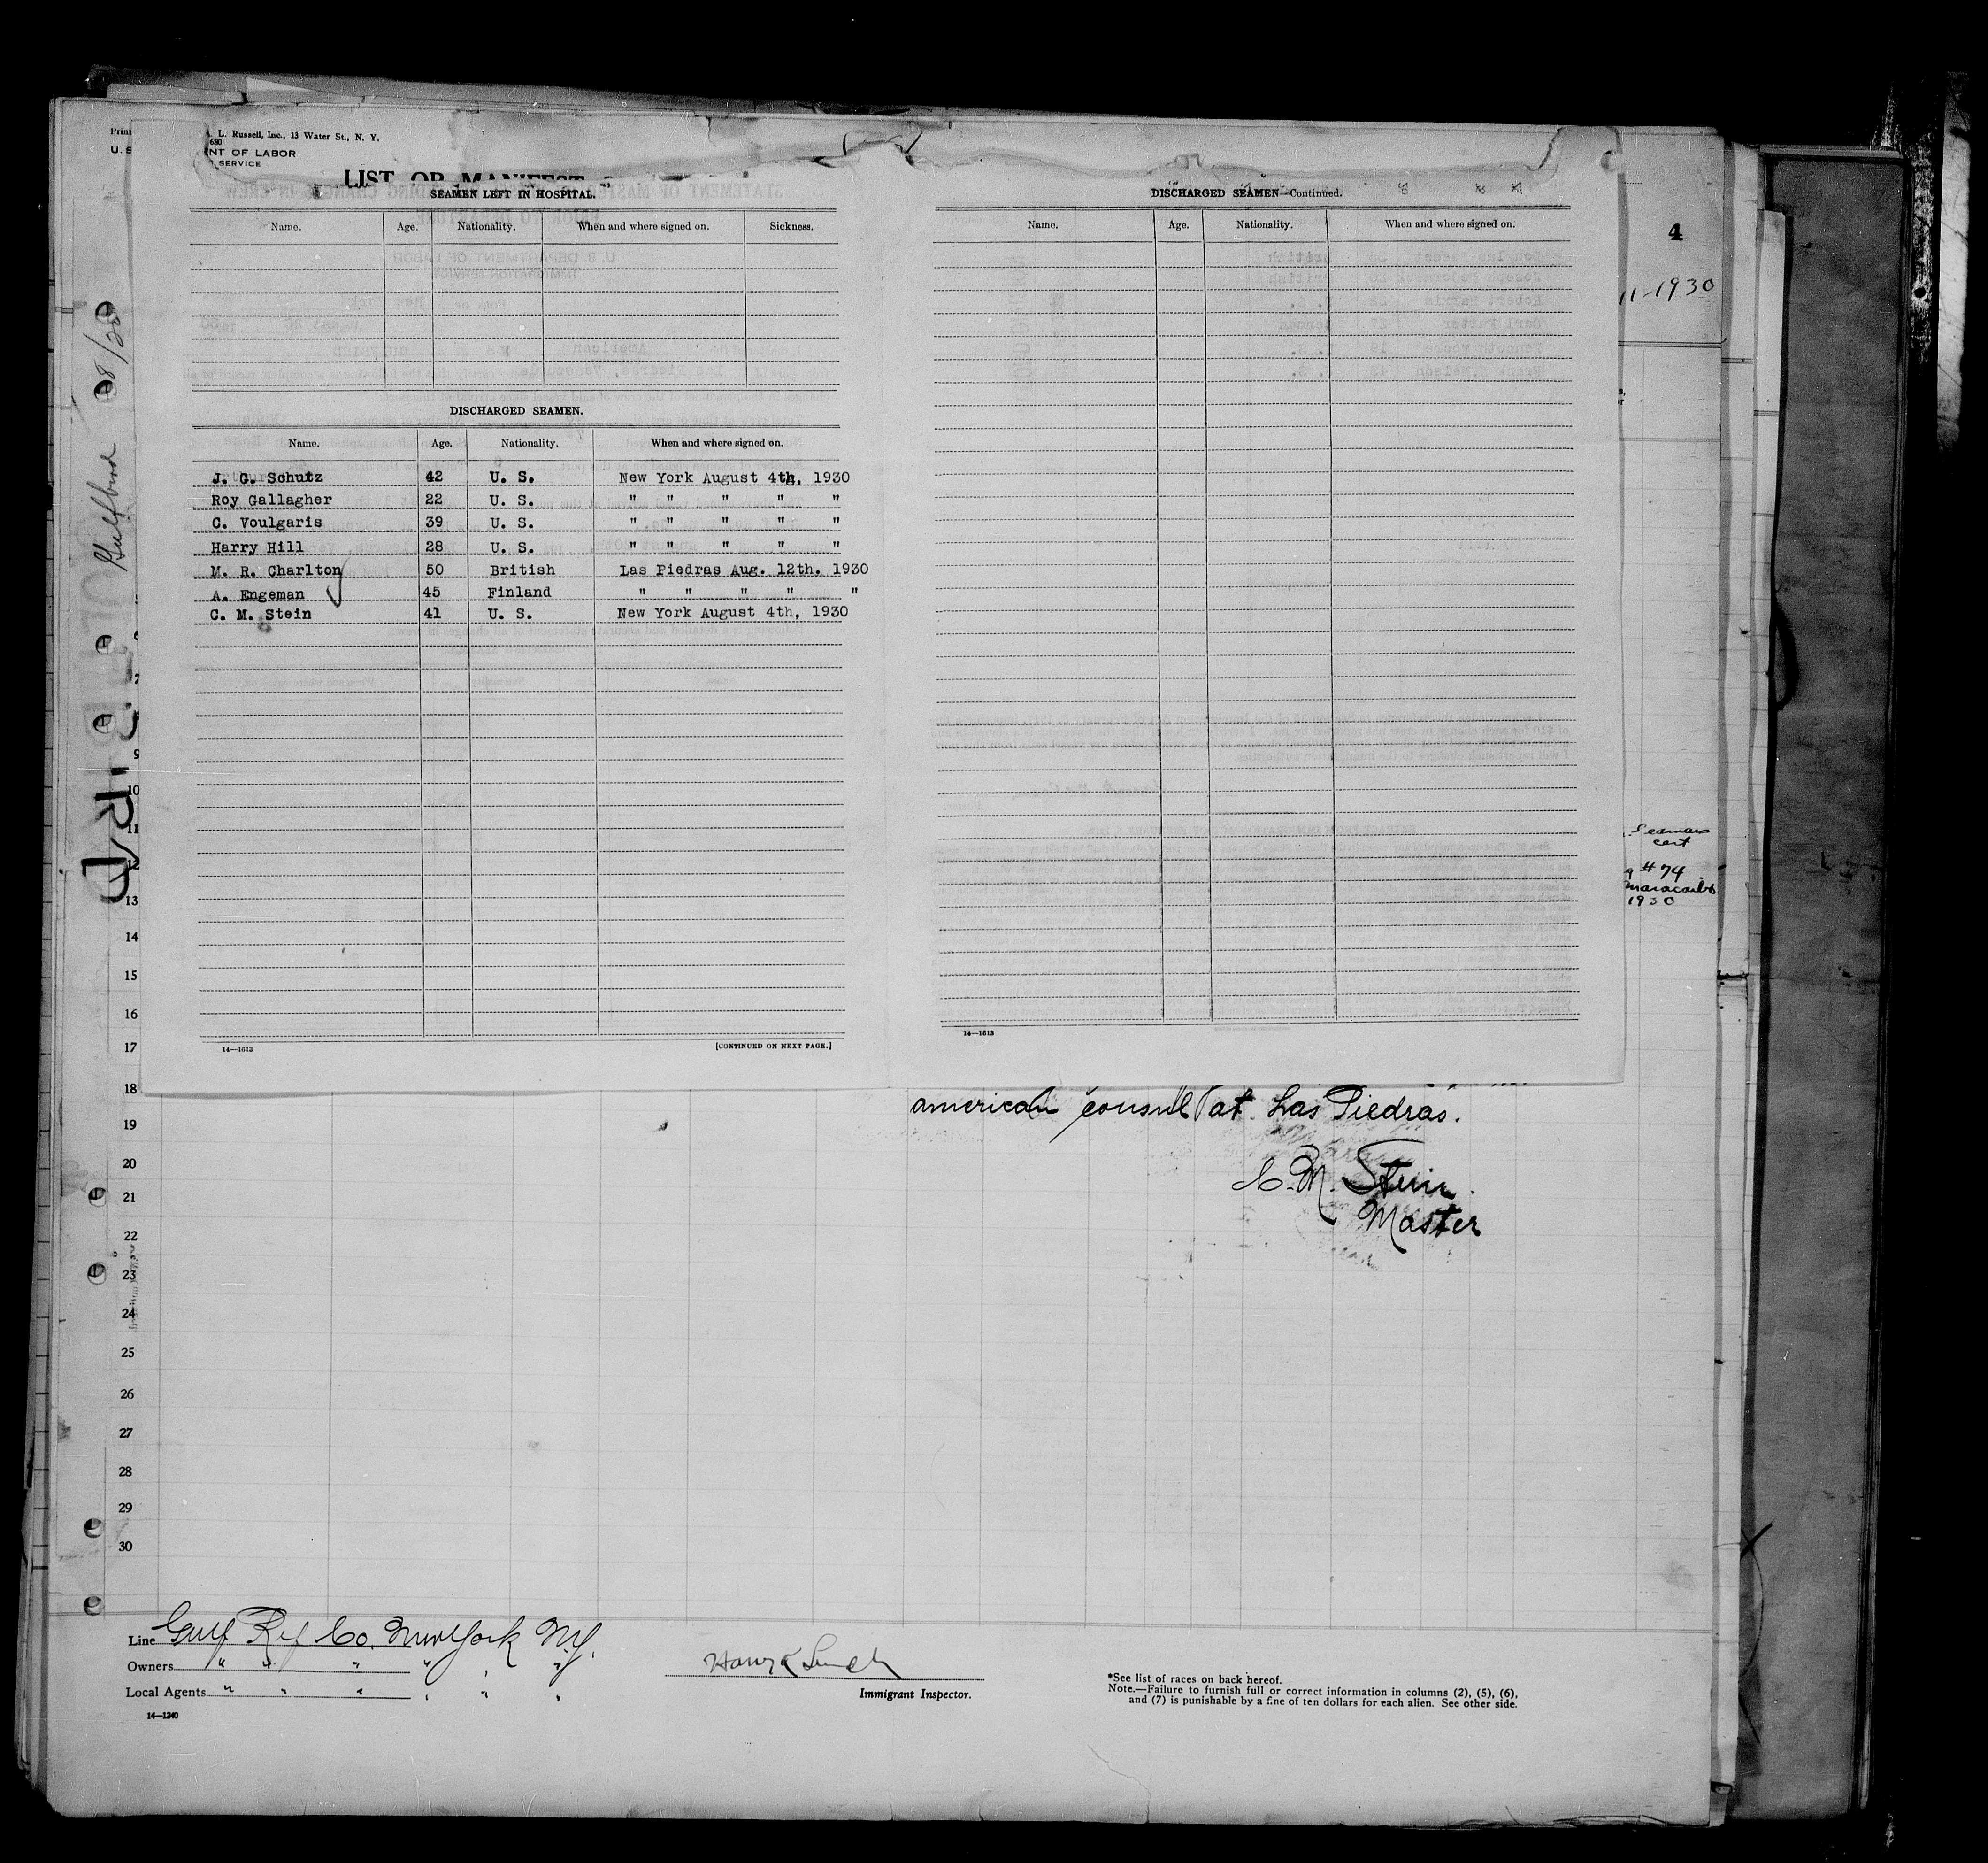 L. Russell, Inc., 13 Water St., N. Y.
680
NT OF LABOR
SERVICE
LIST OR MANIFEST
SEAMEN LEFT IN HOSPITAL.
Name. Age. Nationality. When and where signed on. Sickness.
DISCHARGED SEAMEN.
Name. Age. Nationality. When and where signed on.
J. G. Schutz 42 U. S. New York August 4th, 1930
Roy Gallagher 22 U. S. " " " " "
C. Voulgaris 39 U. S. " " " " "
Harry Hill 28 U. S. " " " " "
M. R. Charlton 50 British Las Piedras Aug. 12th. 1930
A. Engeman 45 Finland " " " " "
C. M. Stein 41 U. S. New York August 4th, 1930
14—1613 [CONTINUED ON NEXT PAGE.]
DISCHARGED SEAMEN—Continued.
Name. Age. Nationality. When and where signed on.
14—1613
4
11-1930
Seamans
cert
#74
Maracaibo
1930
9
10
11
12
13
14
15
16
17
18
19
20
21
22
23
24
25
26
27
28
29
30
american consul at Las Piedras.
C. M. Stein
Master
Line Gulf Ref Co. New York N.Y.
Owners " " " " " "
Local Agents " " " " " "
14—1240
Immigrant Inspector.
*See list of races on back hereof.
Note.—Failure to furnish full or correct information in columns (2), (5), (6),
and (7) is punishable by a fine of ten dollars for each alien. See other side.